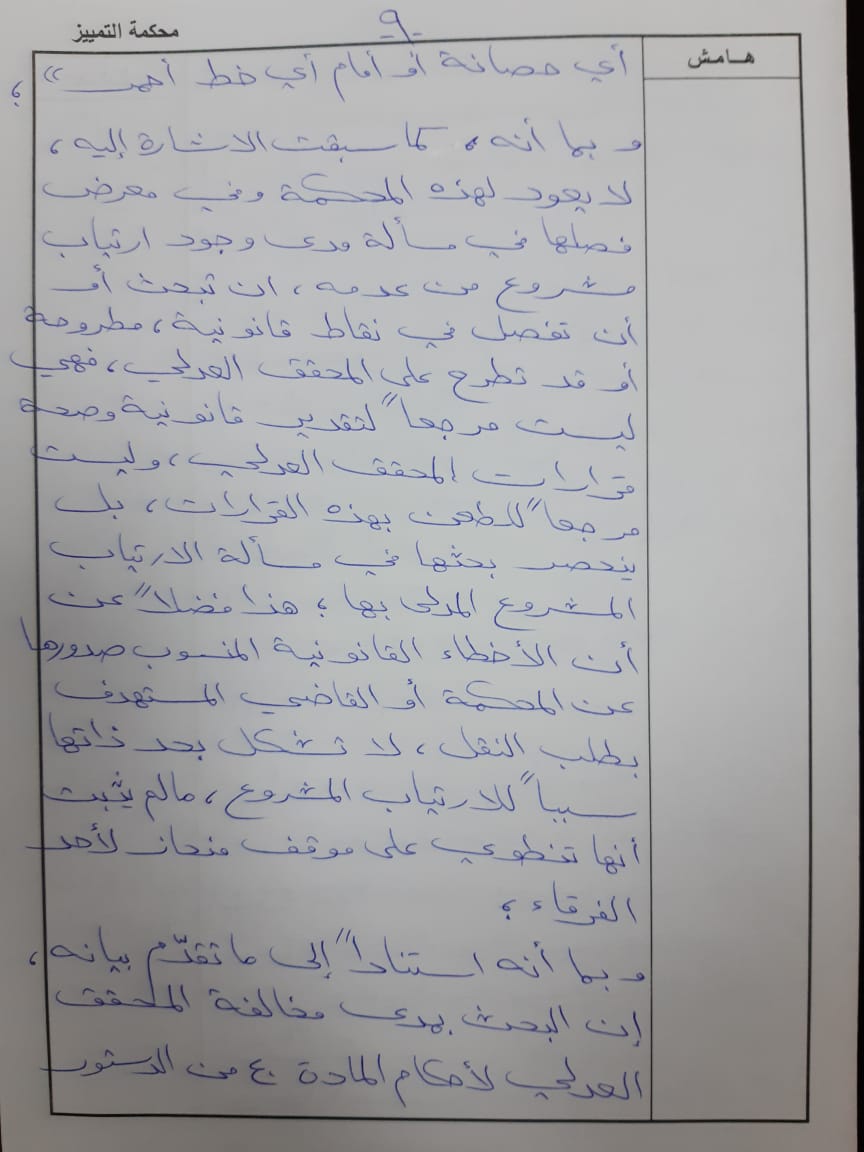 محكمة التمييز
-٩-
هـامش
أي حصانة أو أمام أي خط أحمر »؛
و بما أنه، كما سبقت الاشارة إليه،
لا يعود لهذه المحكمة وفي معرض
فصلها في مسألة مدى وجود ارتياب
مشروع من عدمه، ان تبحث أو
أن تفصل في نقاط قانونية، مطروحة
أو قد تطرح على المحقق العدلي، فهي
ليست مرجعاً لتقدير قانونية وصحة
قرارات المحقق العدلي، وليست
مرجعاً للطعن بهذه القرارات، بل
ينحصر بحثها في مسألة الارتياب
المشروع المدلى بها؛ هذا فضلاً عن
أن الأخطاء القانونية المنسوب صدورها
عن المحكمة أو القاضي المستهدف
بطلب النقل، لا تشكل بحد ذاتها
سبباً للارتياب المشروع، مالم يثبت
أنها تنطوي على موقف منحاز لأحد
الفرقاء؛
و بما أنه استناداً إلى ما تقدّم بيانه،
إن البحث بمدى مخالفة المحقق
العدلي لأحكام المادة ٤٠ من الدستور